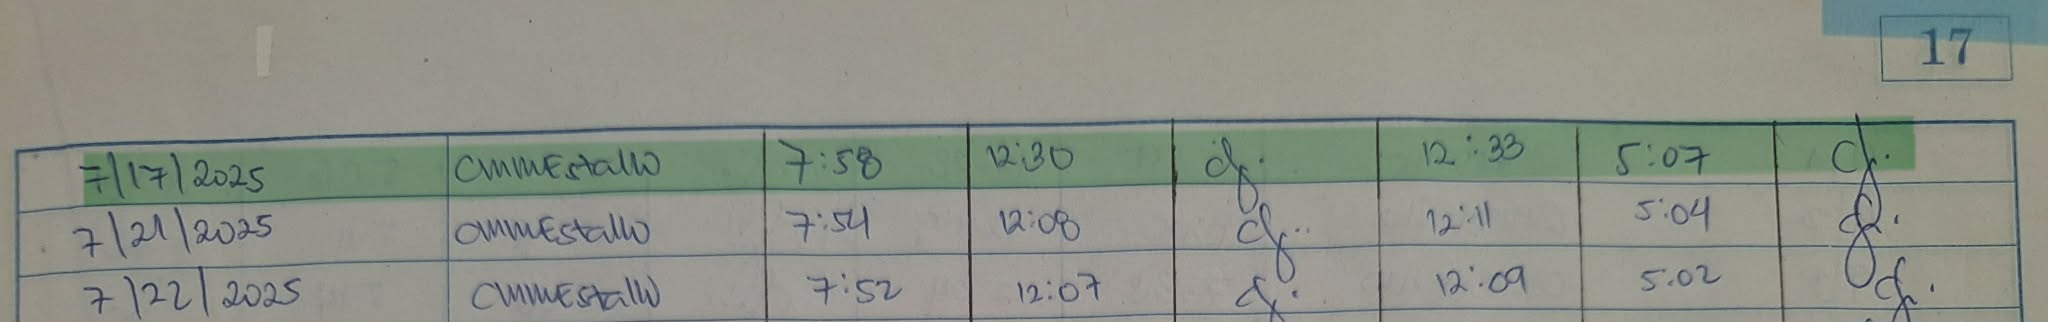 17
7/17/2025 CMMEstallo 7:58 12:30 12:33 5:07
7/21/2025 CMMEstallo 7:54 12:08 12:11 5:04
7/22/2025 CMMEstallo 7:52 12:07 12:09 5:02